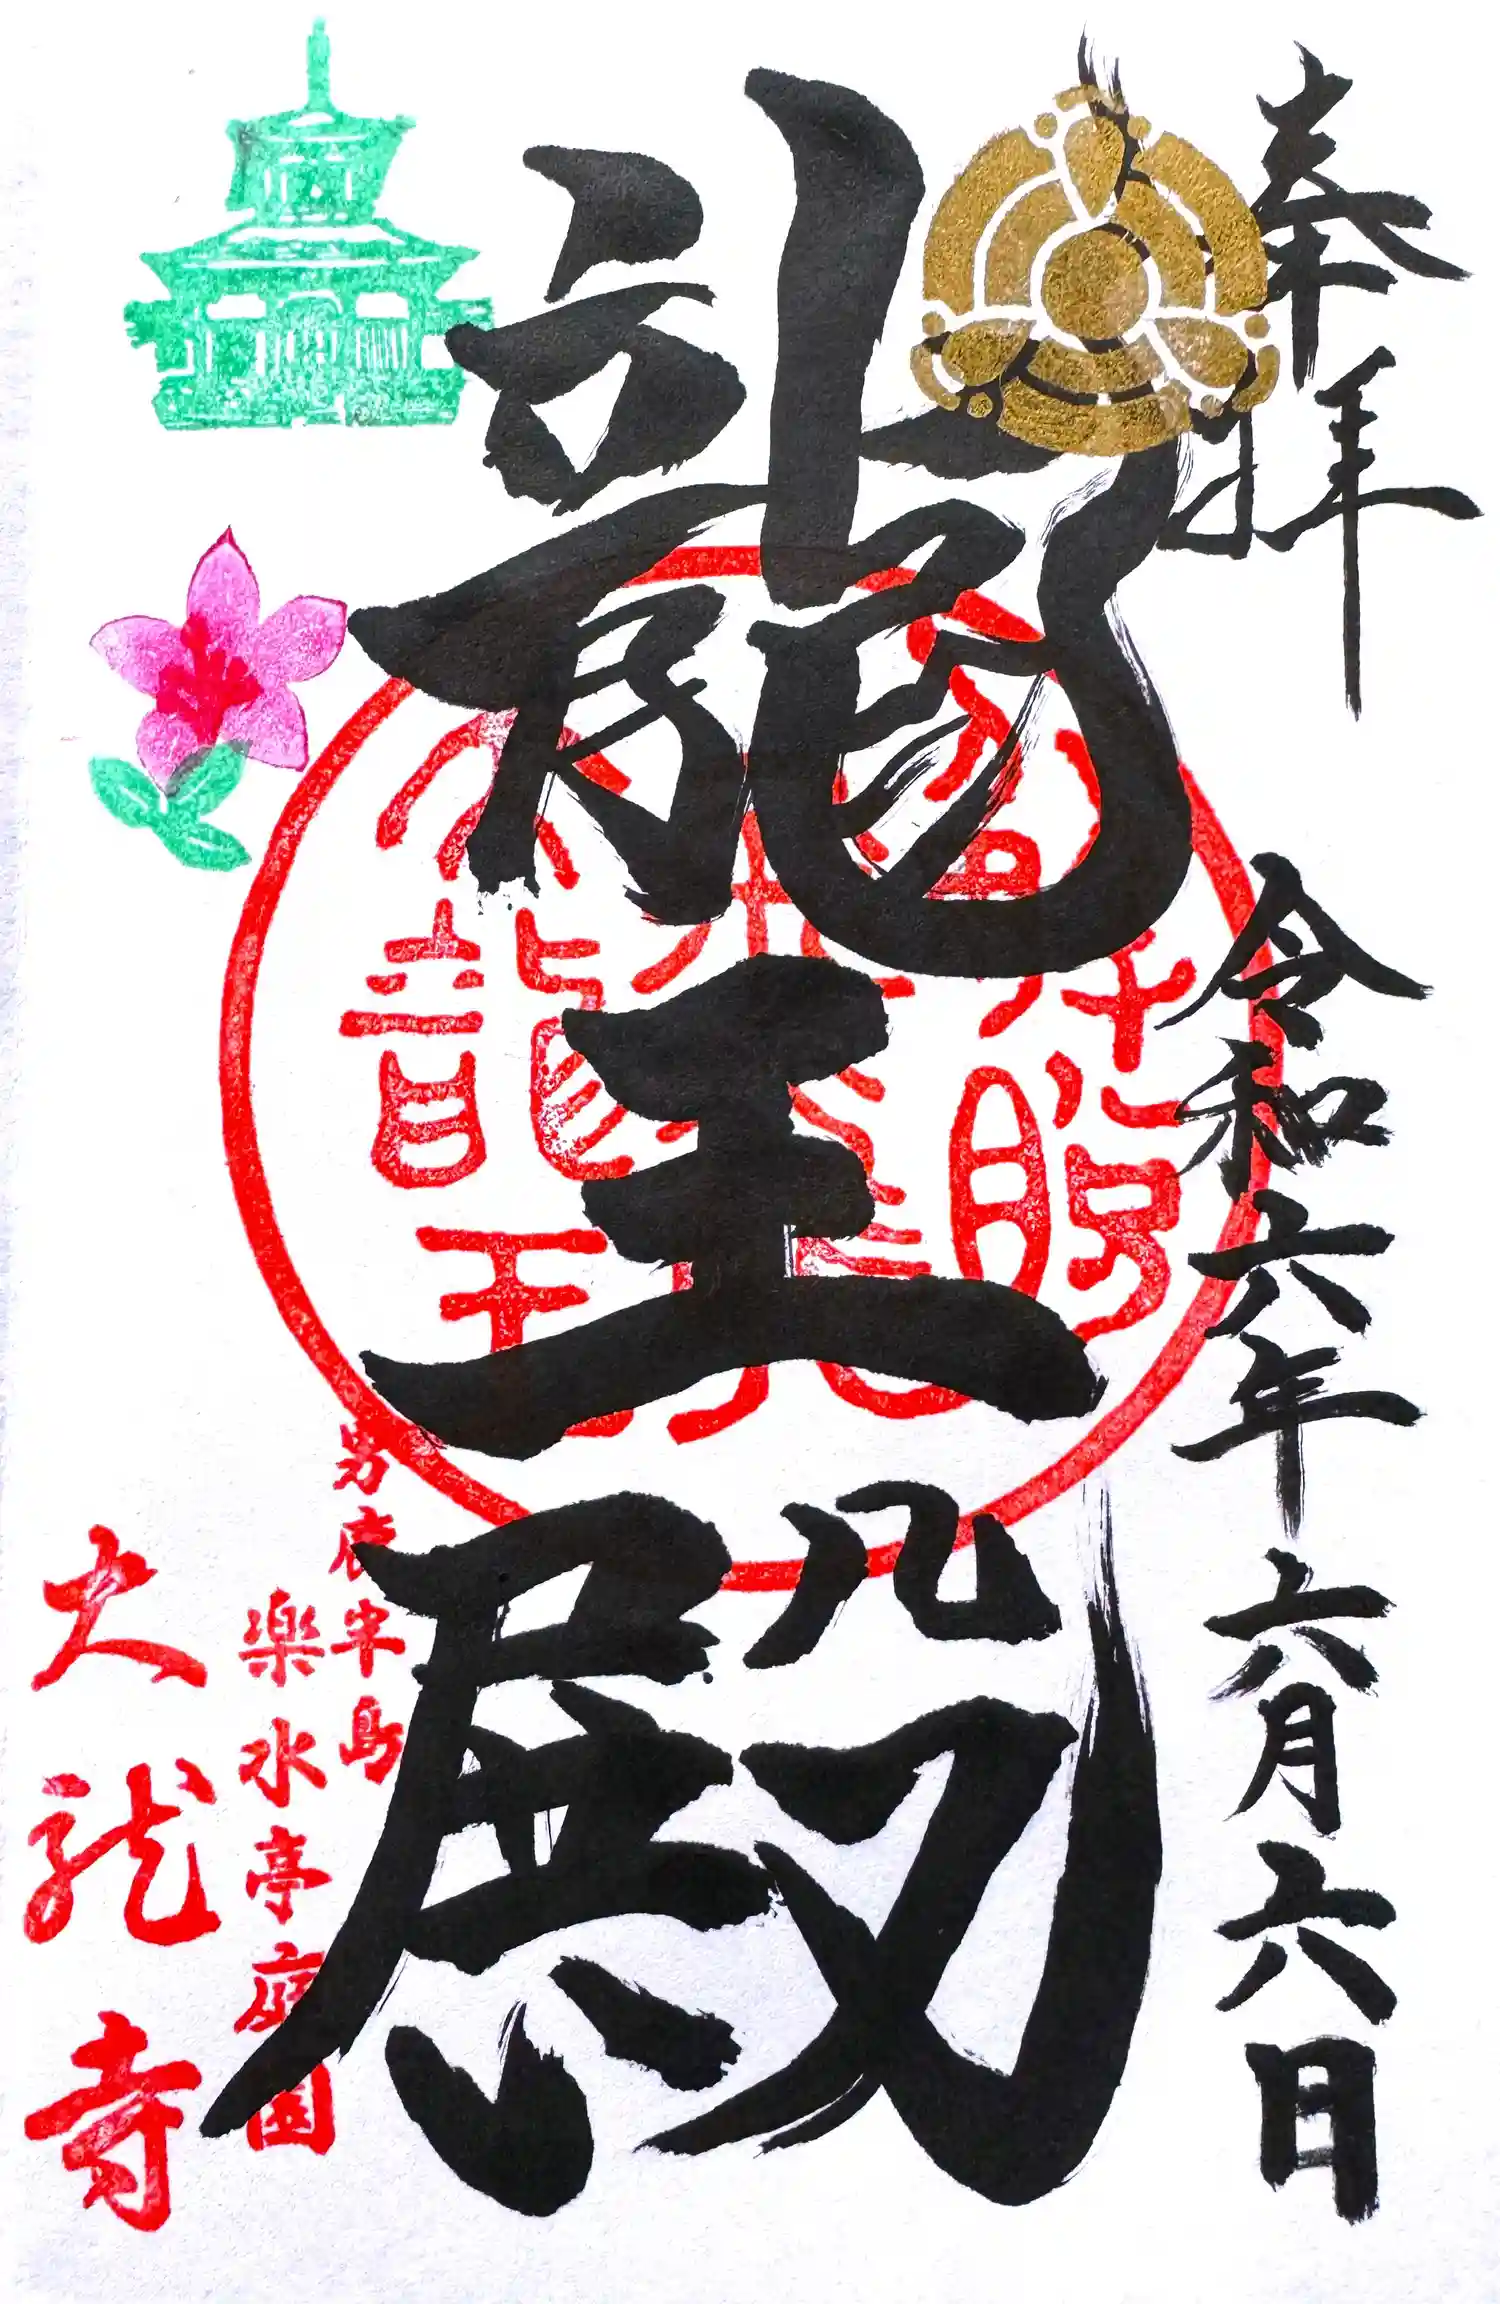 奉拝
令和六年六月六日
龍王殿
男鹿半島
楽水亭庭園
大龍寺